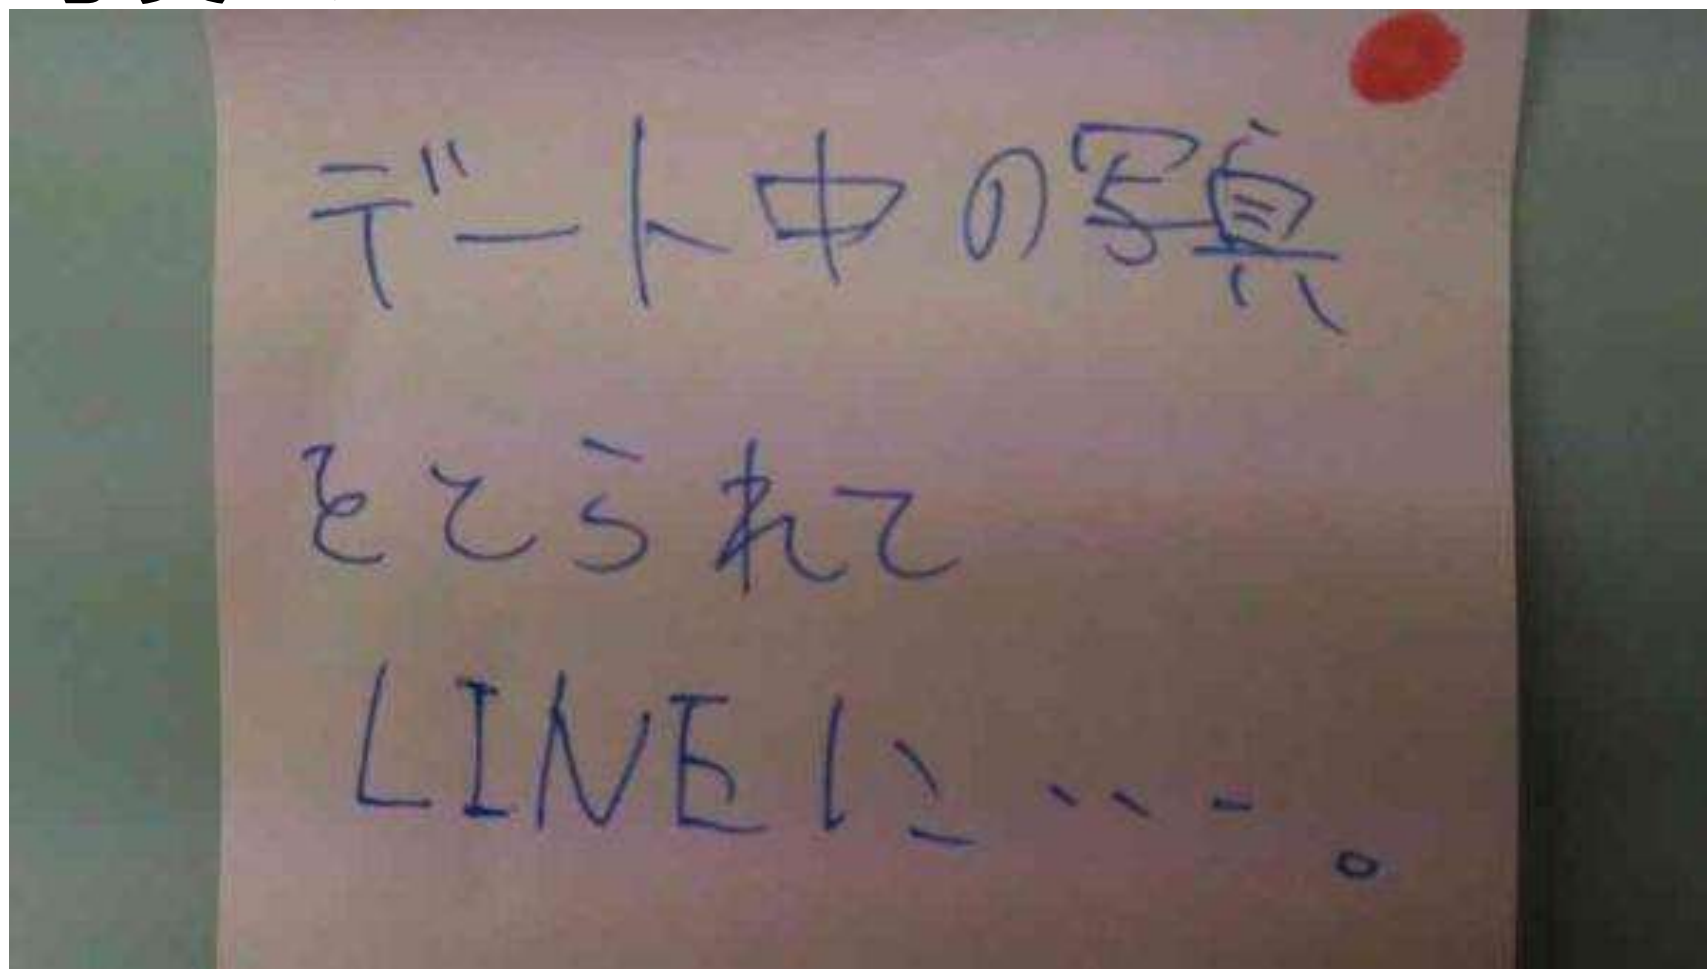 デート中の写真
をとられて
LINEに・・・。